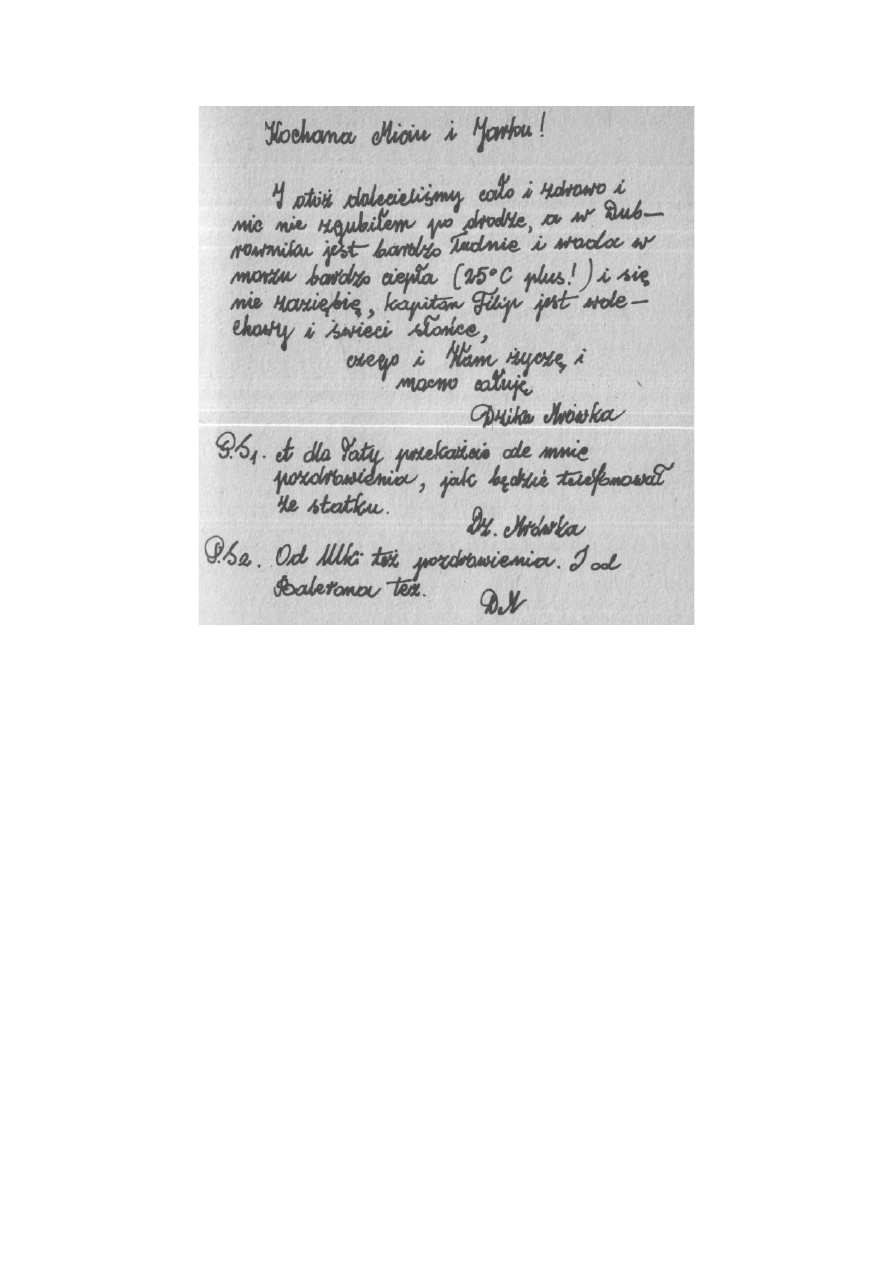 Kochana Miciu i Jarku!
I otóż dolecieliśmy cało i zdrowo i
nic nie zgubiłem po drodze, a w Dub-
rowniku jest bardzo ładnie i woda w
morzu bardzo ciepła (25°C plus!) i się
nie zaziębię, kapitan Filip jest wole-
chowy i świeci słońce,
czego i Wam życzę i
mocno całuję
Dzika Mrówka
P.S1. A dla Taty przekażcie ode mnie
pozdrowienia, jak będzie telefonował
ze statku.
Dz. Mrówka
P.S2. Od Ulki też pozdrowienia. I od
Balerona też.
DM